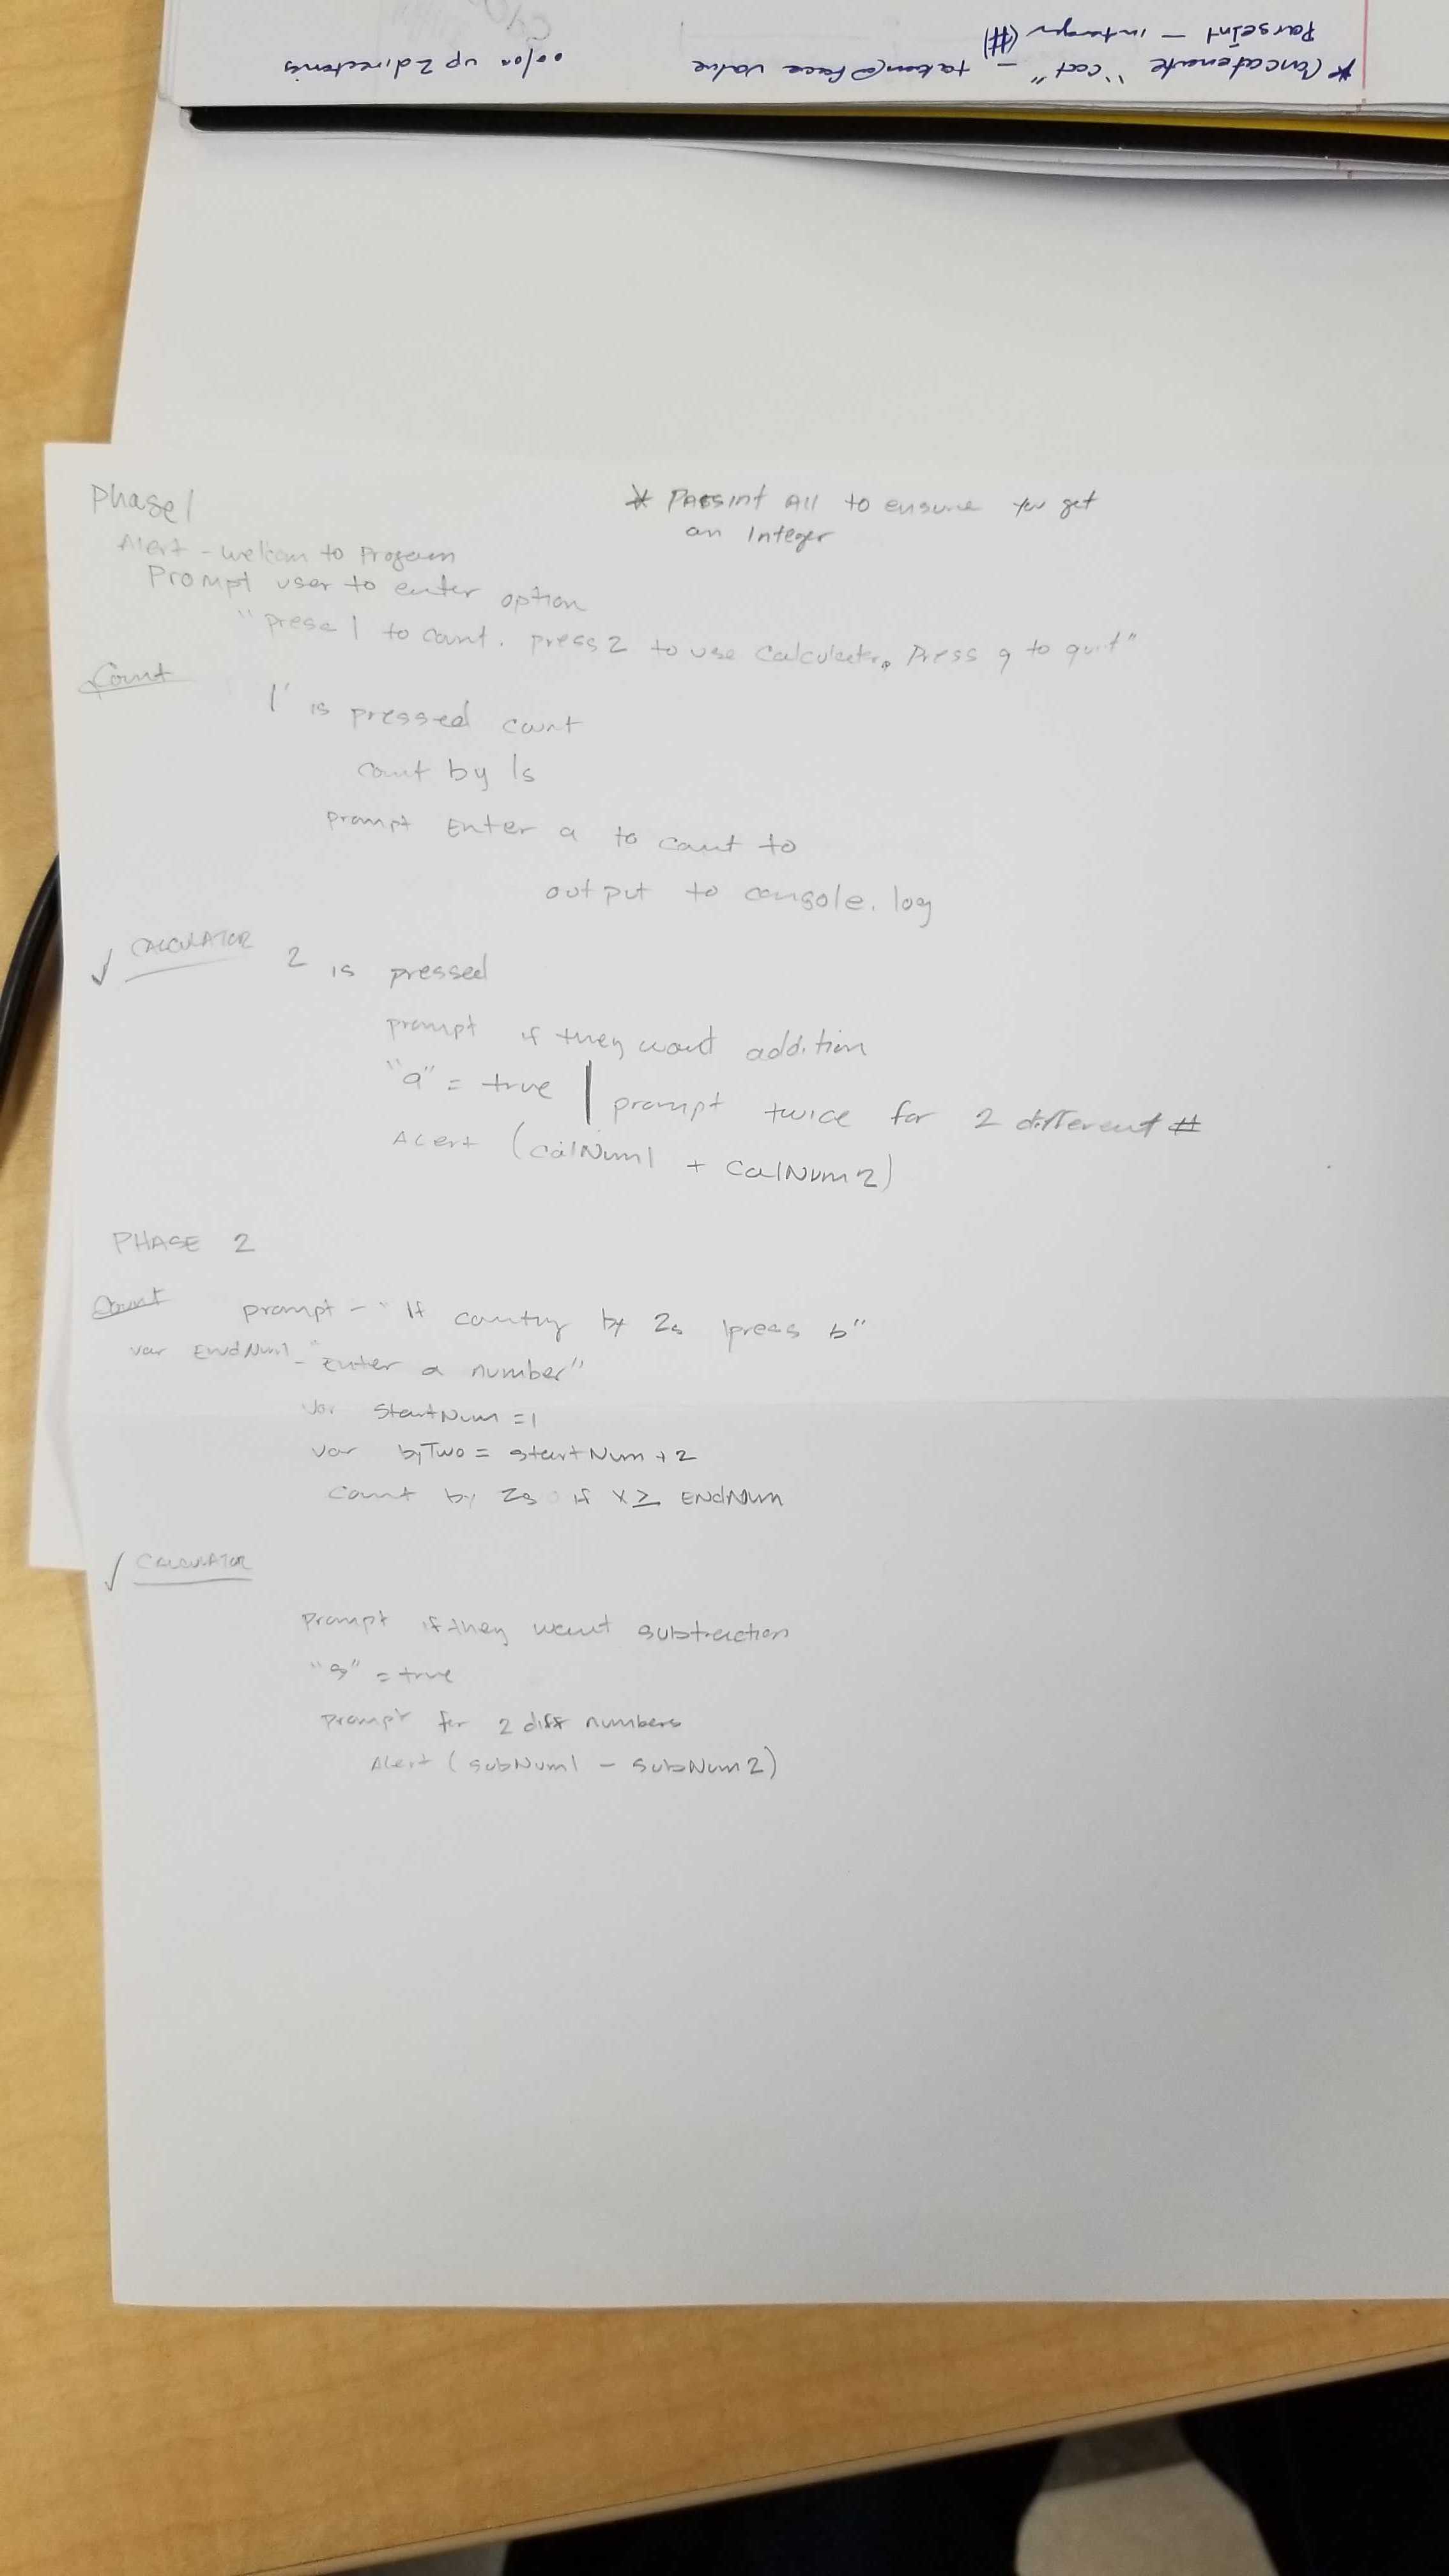 * Concatenate "cat" - taken @ face value
Parseint - intanger (#)
up 2 directories
Phase 1
* Parsint All to ensure you get
an Integer
Alert - welcom to Program
Prompt user to enter option
"press 1 to count. press 2 to use Calculater. Press q to quit"
Count
1 is pressed count
count by 1s
prompt Enter a to count to
output to console.log
✓ CALCULATOR 2 is pressed
prompt if they want addition
"a" = true | prompt twice for 2 different #
Alert (calNum1 + calNum2)
PHASE 2
Count prompt - "If countng by 2s press b"
var EndNum1 - "Enter a number"
var startNum = 1
var byTwo = startNum + 2
Count by 2s if x ≥ ENdNum
✓ CALCULATOR
prompt if they want subtraction
"s" = true
prompt for 2 diff numbers
Alert (subNum1 - subNum2)